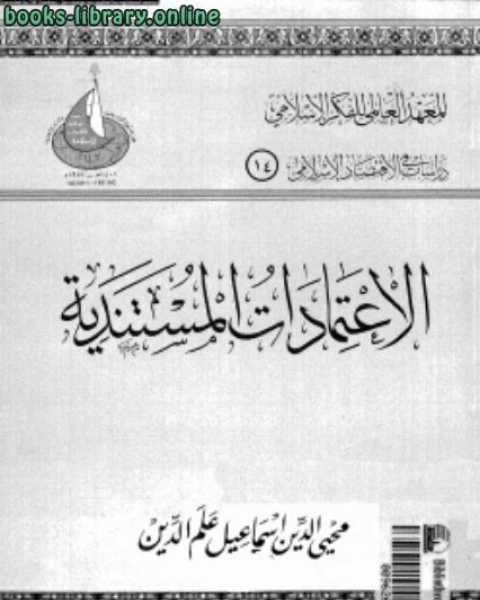 books-library.online
المعهد العالمي للفكر الإسلامي
دراسات في الاقتصاد الإسلامي
١٤
الاِعْتِمَادَاتُ المُسْتَنَدِيَّة
محيي الدين إسماعيل علم الدين